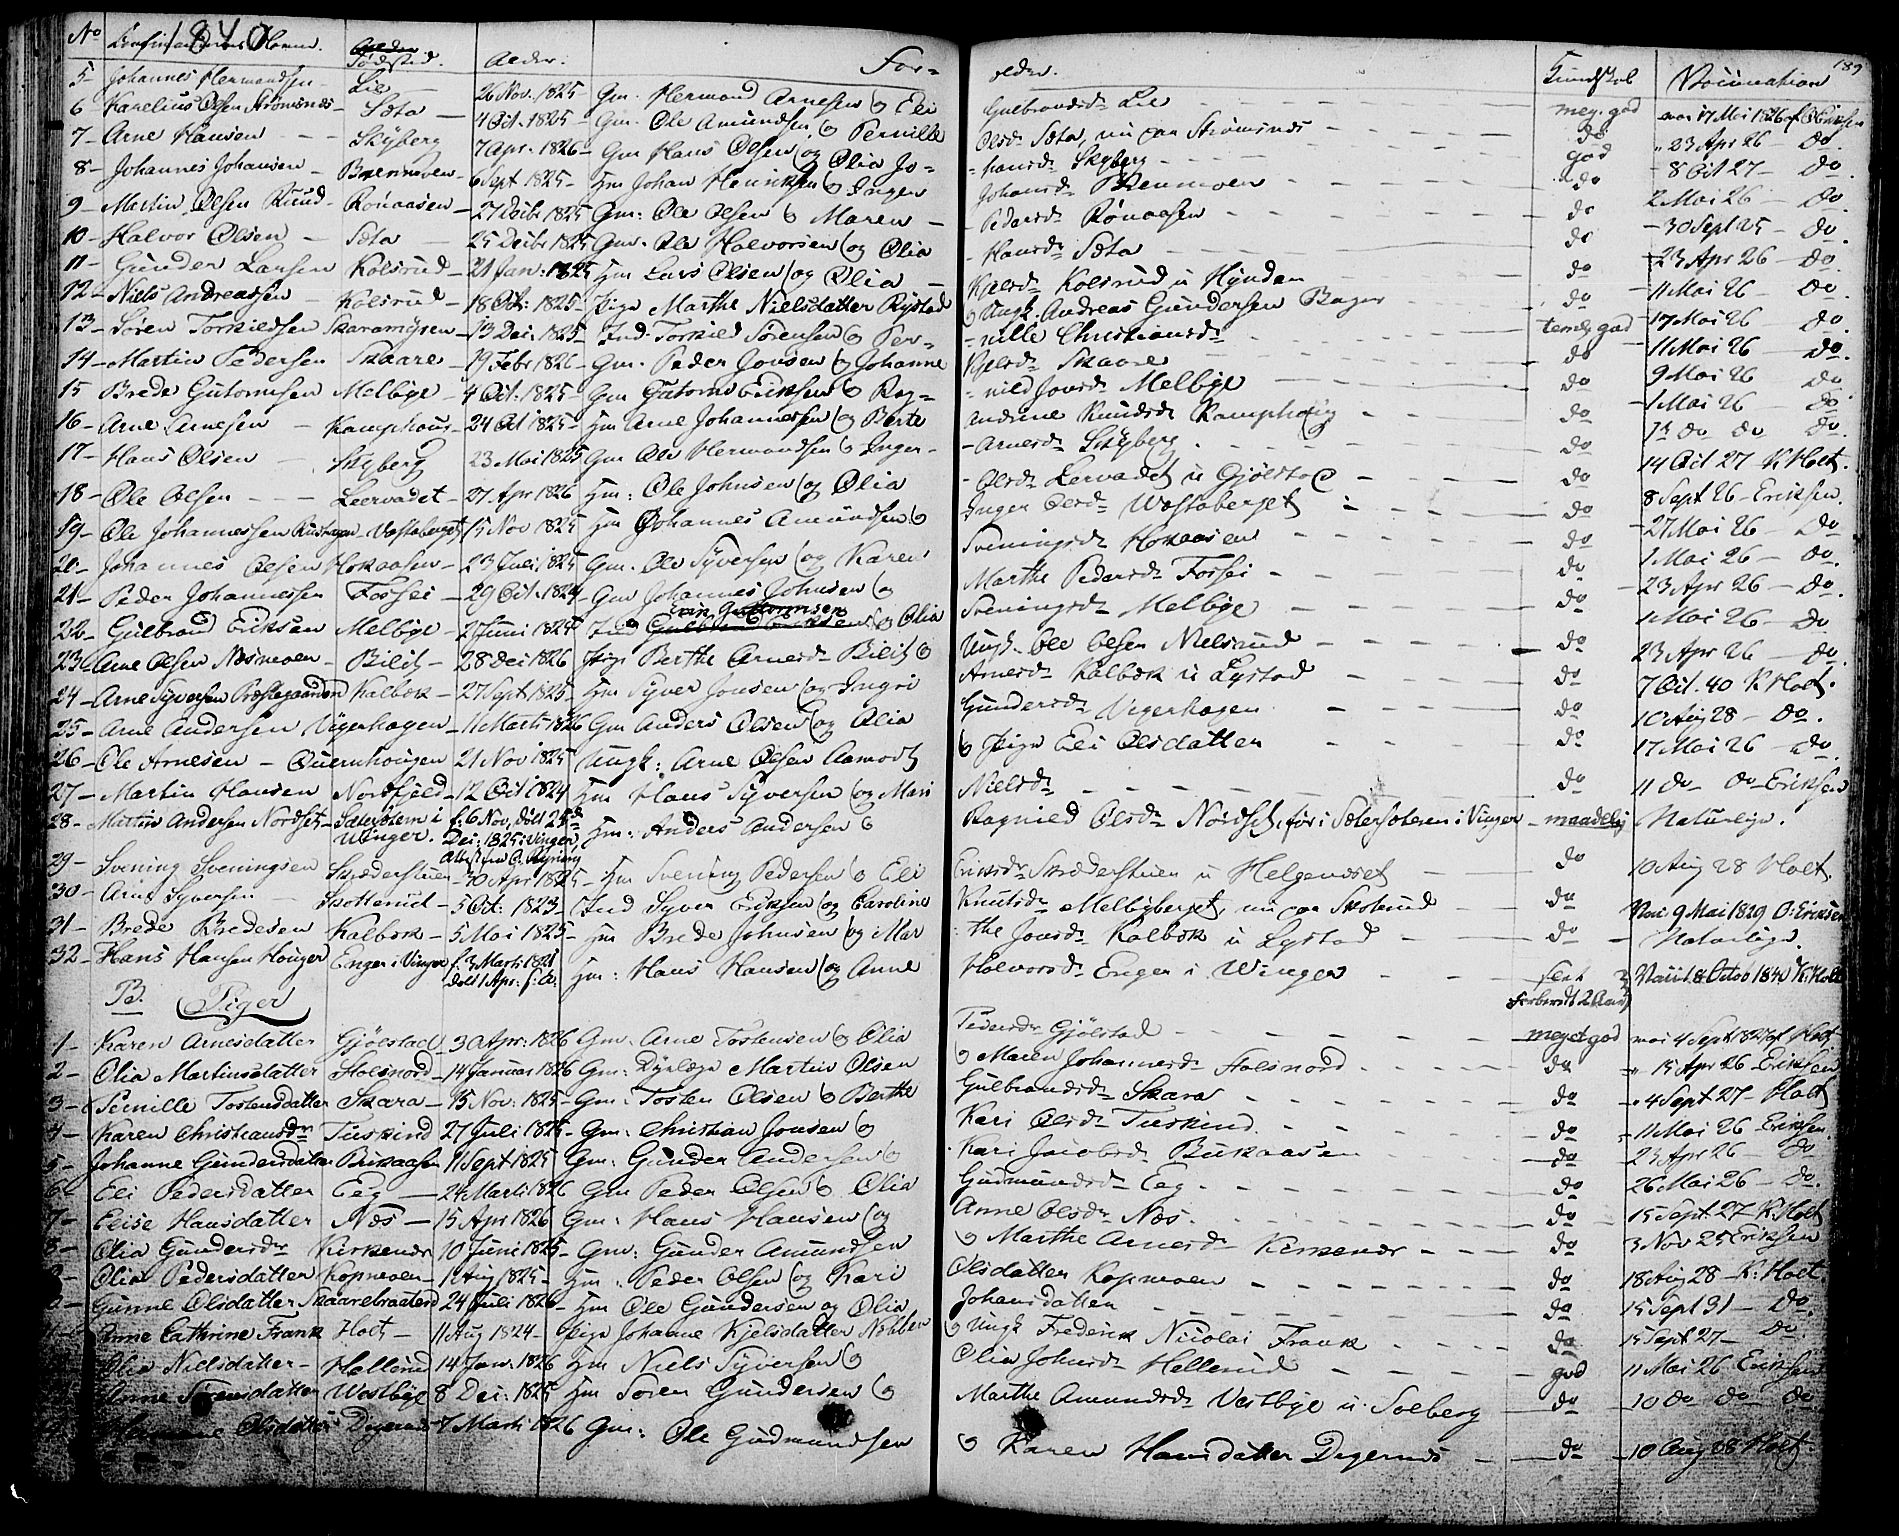 1840
No Confirmandernes Navne. Fødested. Alder. For-
5- Johannes Hermandsen Lie 26 Nov. 1825- Gm. Hermand Arnesen og Eli
6 Karelius Olsen Strømsnes- Sæta - 4 Oct. 1825- Gm. Ole Amundsen og Pernille
7- Arne Hansen - - Skyberg 7 Apr. 1826- Gm Hans Olsen og Olia Jo-
8- Johannes Johansen - Brennmoen- 6 Sept 1825- Hm Johan Henriksen og Inger
9- Martin Olsen Ruud- Rønaasen- 27 Decbr 1825 Gm: Ole Olsen og Maren -
10- Halvor Olsen - Sæta - 25 Decbr 1825 Gm. Ole Halvorsen og Olia
11- Gunder Larsen Kolsrud- 21 Jan: 1825 Hm Lars Olsen og Olia -
12- Niels Andreassen - Kolsrud- 18 Oct: 1825- Pige Marthe Nielsdatter Rystad
13- Søren Torkildsen Skaramyren- 13 Dec. 1825- Ind. Torkild Sørensen og Per-
14- Martin Pedersen Skaare- 19 Febr 1826- Gm. Peder Jonsen og Johanne
15 Brede Gutormsen Melbye- 4 Oct: 1825- Gm Gutorm Eriksen og Rag-
16- Arne Arnesen - Kamphoug- 24 Oct 1825- Hm Arne Johannessen og Berte
17- Hans Olsen - Skyberg 23 Mai 1825 Gm Ole Hermandsen og Inger-
18- Ole Olsen - - Leervadet- 27. Apr 1826 Hm: Ole Johnsen og Olia
19- Ole Johannessen - Vastaberget 15 Nov 1825 Hm Johannes Amundsen og
20- Johannes Olsen Hokaasen- 23 Juli 1825 Gm. Ole Syversen og Karen
21- Peder Johannessen Fossei- 29 Oct. 1824- Gm Johannes Johnsen og
22- Gulbrand Eriksen Melbye- 2 Juni 1825 Ind Erik Guttormsen og Olia
23- Arne Olsen Nesmoen- Bilit- 28 Dec 1826 Pige Berthe Arnesdr Bilit og
24- Arne Syversen Præstegaarden Kalbæk- 27 Sept 1825- Hm Syver Jonsen og Ingri
25- Arne Andersen Vigerhagen- 11 Marti 1826 Gm Anders Olsen og Olia
26- Ole Arnesen - Quernhougen 21 Nov 1825 Ungk: Arne Olsen Aamodt
27- Martin Hansen Nordfjeld- 12 Oct 1824 Hm Hans Syversen og Mari
28- Martin Andersen Nordset- Sætersøteren i Winger. f: 6 Nov, døbt 25de Dec: 1825 i Vinger, Hm: Anders Andersen og
29- Svening Sveningsen Skrædderstuen- 30 Apr 1825- Hm Svening Pedersen og Eli
30- Arne Syversen - Skotterud- 5 Oct: 1823- Ind Syver Eriksen og Caroline
31- Brede Bredesen Kalbæk- 5 Mai 1825- Hm Brede Johnsen og Mar
32- Hans Hansen Houger Enger i Vinger f. 3 Marti 1821 Døbt 1 Apr: s: A. Hm: Hans Hansen og Anne
B. Piger
1- Karen Arnesdatter Gjølstad- 3 Apr: 1826 Gm. Arne Tostensen og Olia
2- Olia Martinsdatter Holsnord- 14 Januar 1826 Gm: Dyrlæge Martin Olsen
3- Pernille Tostensdatter Skara- 15 Nov: 1825- Gm: Tosten Olsen og Berthe
4- Karen Christiansdr Tuskind 27 Juli 1825- Gm. Christian Jonsen og
5- Johanne Gundersdatter Bukaasen 11 Sept 1825 Gm: Gunder Andersen og
6- Eli Pedersdatter Eeg - 24 Marti 1826 Gm Peder Olsen og Olia
7- Elise Hansdatter Næs - 15 Apr 1826 Gm: Hans Hansen og
8- Olia Gundersdr Kirkenær 10 Juni 1825- Gm: Gunder Amundsen
Olia Pedersdatter Kopmoen- 1 Aug 1825- Hm: Peder Olsen og Kari
Gunne Olsdatter Skaarebraaten 24 Juli 1826- Hm Ole Gundersen og Olia
Anne Cathrine Frank Holt- 11 Aug 1824- Pige Johanne Kjelsdatter Nebben
Olia Nielsdatter- Hallerud 14 Jan. 1826 Hm Niels Syversen og
Anne Sørensdatter Westbye 8 Dec: 1825 Hm Søren Gundersen og
Olsdatter Degernæs 7 Marti 1826 Gm: Ole Gudmundsen
189
ældre. Kundskab Vaccination
Gulbrandsdr Lie meg. god nat 17 Mai 1826 af O Eriksen
Olsdr Sæta, nu paa Strømsnes do " 23 Apr 26 - do.
-hansdr Skyberg god - 8 Oct 27 - do.
Johansdr Brennmoen do 2 Mai 26 - do.
Pedersdr Rønaasen do - 30 Sept 25 - do.
Hansdr Sæta do 23 Apr 26 - do
Kjelsdr Kolsrud u Hynden do 11 Mai 26 - do.
og Ungk. Andreas Gundersen Bager do 17 Mai 26 do.
-nille Christiansdr temlg god 11 Mai 26 - do.
Kjelsdr Skaare do 9 Mai 26 do.
-nild Jonsdr Melbye do 1 Mai 26 do
Andrine Knudsdr Kamphoug do 12 do do do
-Arnesdr Skyberg do 14 Oct 27 K Holt.
-Olsdr Lervadet u Gjølstad do 8 Sept 26 - Eriksen.
Inger Olsdr Wastaberget do 27 Mai 26 - do
Sveningsdr Hokaasen do 1 Mai 26 - do.
Marthe Pedersdr Fossei do 23 Apr 26 - do.
Sveningsdr Melbye do 1 Mai 26 - do
Ungk. Ole Olsen Nielsrud do 23 Apr 26 - do.
Arnesdr Kalbæk u Lystad do 7 Oct. 40 K Holt.
Gundersdr Vigerhagen do 10 Aug 28 - do.
og Pige Eli Olsdatter do 17 Mai 26 - do.
Nielsdr do 11 do do Eriksen
Ragnild Olsdr Nordset, før i Sætersøteren i Vinger - maadelig Naturlige.
Eriksdr Skrædderstuen u Helgenæset do 10 Aug 28 Holt.
Knutsdr Melbyberget, nu paa Skoterud do Vac. 9 Mai 1829 O: Eriksen
the Jonsdr Kalbæk u Lystad do - Naturlige.
Halvorsdr Enger i Winger Vacc. 8 Octob 1840 K: Holt
Forberedt 2 Aar
Pedersdr Gjølstad meget god nat 4 Sept 1827 af Holt
og Maren Johannesdr Holsnord do " 15 Apr 26 Eriksen
Gulbrandsdr Skara do " 4 Sept 27 - Holt
Kari Olsdr Tuskind do " 11 Mai 26 Eriksen.
Kari Jacobsdr Bukaasen do - 23 Apr 26 - do
Gudmundsdr Eeg do 26 Mai 26 - do.
Anne Olsdr Næs. do 15 Sept. 27 K: Holt
og Marthe Arnesdr Kirkenær do 3 Nov 25 Eriksen
Olsdatter Kopmoen do 18 Aug 28 - K: Holt.
Johansdatter do 15 Sept 31 - do.
og Ungk Frederik Nicolai Frank do 15 Sept. 27 - do.
Olia Johnsdr Hellerud god 11 Mai 26 Eriksen
Marthe Amundsdr Vestbye u. Solberg do 10 do do do
og Karen Hansdatter Degernæs do 10 Aug 28 Holt